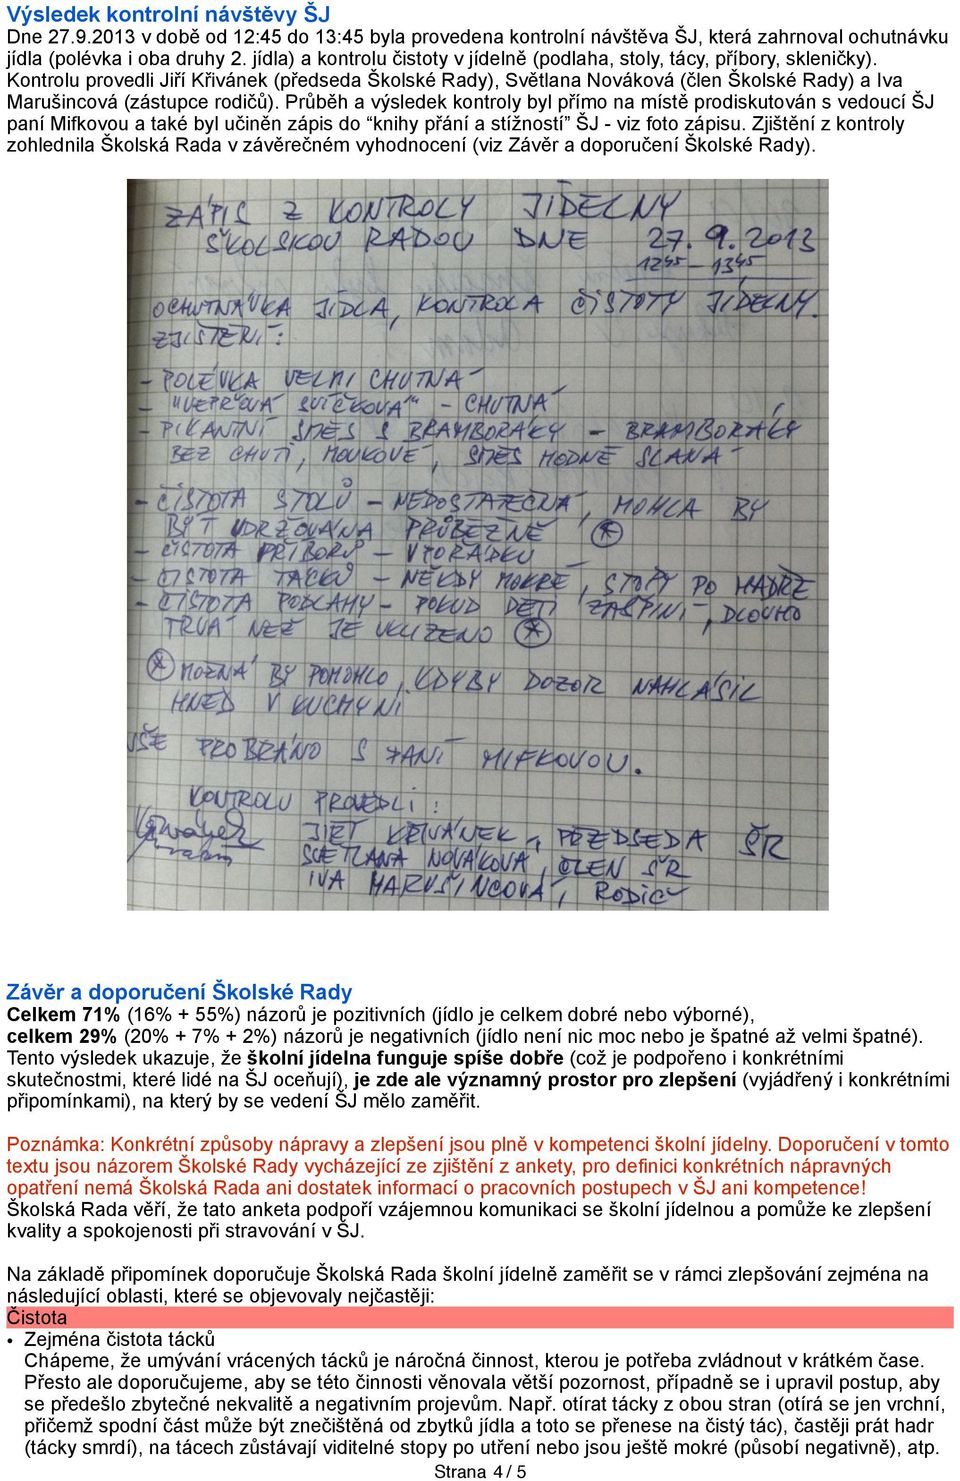 Výsledek kontrolní návštěvy ŠJ
Dne 27.9.2013 v době od 12:45 do 13:45 byla provedena kontrolní návštěva ŠJ, která zahrnoval ochutnávku
jídla (polévka i oba druhy 2. jídla) a kontrolu čistoty v jídelně (podlaha, stoly, tácy, příbory, skleničky).
Kontrolu provedli Jiří Křivánek (předseda Školské Rady), Světlana Nováková (člen Školské Rady) a Iva
Marušincová (zástupce rodičů). Průběh a výsledek kontroly byl přímo na místě prodiskutován s vedoucí ŠJ
paní Mifkovou a také byl učiněn zápis do “knihy přání a stížností” ŠJ - viz foto zápisu. Zjištění z kontroly
zohlednila Školská Rada v závěrečném vyhodnocení (viz Závěr a doporučení Školské Rady).
ZÁPIS Z KONTROLY JÍDELNY
ŠKOLSKOU RADOU DNE 27.9.2013
12⁴⁵ – 13⁴⁵
OCHUTNÁVKA JÍDLA, KONTROLA ČISTOTY JÍDELNY.
ZJIŠTĚNÍ:
- POLÉVKA VELMI CHUTNÁ
- "VEPŘOVÁ SVÍČKOVÁ" - CHUTNÁ
- PIKANTNÍ SMĚS S BRAMBORÁKY - BRAMBORÁKY
BEZ CHUTI, MOUKOVÉ, SMĚS HODNĚ SLANÁ
- ČISTOTA STOLŮ - NEDOSTATEČNÁ, MOHLA BY
BÝT UDRŽOVÁNA PRŮBĚŽNĚ (*)
- ČISTOTA PŘÍBORŮ - V POŘÁDKU
- ČISTOTA TÁCKŮ - NĚKDY MOKRÉ, STOPY PO HADŘE
- ČISTOTA PODLAHY - POKUD DĚTI ZAŠPINÍ, DLOUHO
TRVÁ NEŽ JE UKLIZENO (*)
(*) MOŽNÁ BY POMOHLO, KDYBY DOZOR NAHLÁSIL
HNED V KUCHYNI
VŠE PROBRÁNO S PANÍ MIFKOVOU.
KONTROLU PROVEDLI:
JIŘÍ KŘIVÁNEK, PŘEDSEDA ŠR
SVĚTLANA NOVÁKOVÁ, ČLEN ŠR
IVA MARUŠINCOVÁ, RODIČ
Závěr a doporučení Školské Rady
Celkem 71% (16% + 55%) názorů je pozitivních (jídlo je celkem dobré nebo výborné),
celkem 29% (20% + 7% + 2%) názorů je negativních (jídlo není nic moc nebo je špatné až velmi špatné).
Tento výsledek ukazuje, že školní jídelna funguje spíše dobře (což je podpořeno i konkrétními
skutečnostmi, které lidé na ŠJ oceňují), je zde ale významný prostor pro zlepšení (vyjádřený i konkrétními
připomínkami), na který by se vedení ŠJ mělo zaměřit.
Poznámka: Konkrétní způsoby nápravy a zlepšení jsou plně v kompetenci školní jídelny. Doporučení v tomto
textu jsou názorem Školské Rady vycházející ze zjištění z ankety, pro definici konkrétních nápravných
opatření nemá Školská Rada ani dostatek informací o pracovních postupech v ŠJ ani kompetence!
Školská Rada věří, že tato anketa podpoří vzájemnou komunikaci se školní jídelnou a pomůže ke zlepšení
kvality a spokojenosti při stravování v ŠJ.
Na základě připomínek doporučuje Školská Rada školní jídelně zaměřit se v rámci zlepšování zejména na
následující oblasti, které se objevovaly nejčastěji:
Čistota
• Zejména čistota tácků
Chápeme, že umývání vrácených tácků je náročná činnost, kterou je potřeba zvládnout v krátkém čase.
Přesto ale doporučujeme, aby se této činnosti věnovala větší pozornost, případně se i upravil postup, aby
se předešlo zbytečné nekvalitě a negativním projevům. Např. otírat tácky z obou stran (otírá se jen vrchní,
přičemž spodní část může být znečištěná od zbytků jídla a toto se přenese na čistý tác), častěji prát hadr
(tácky smrdí), na tácech zůstávají viditelné stopy po utření nebo jsou ještě mokré (působí negativně), atp.
Strana 4 / 5